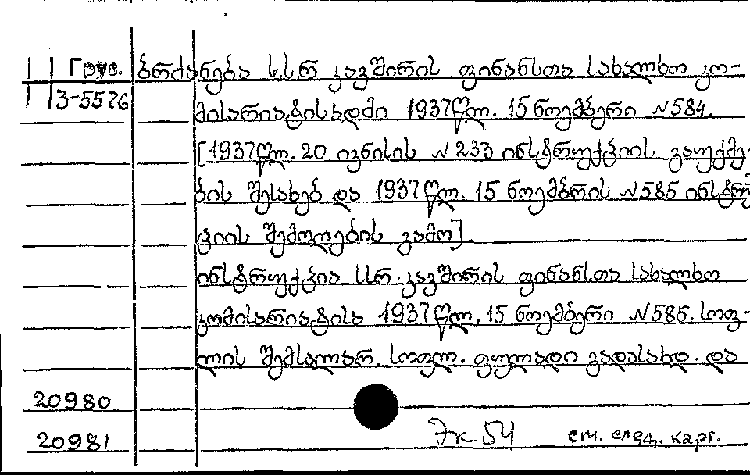 Груз. ბრძანება სსრ კავშირის ფინანსთა სახალხო კო-
3-5576 მისარიატისადმი 1937წლ. 15 ნოემბერი №584.
[1937წლ. 20 ივნისის №233 ინსტრუქციის გაუქმე
ბის შესახებ და 1937წლ. 15 ნოემბრის №585 ინსტრუ
ციის შემოღების გამო].
ინსტრუქცია სსრ. კავშირის ფინანსთა სახალხო
კომისარიატისა 1937წლ. 15 ნოემბერი №585. სოფ-
ლის შემსალარ. სოფლ. ფულადი გადასახდ. და
20980
20981 Эк 54 см. след. карт.